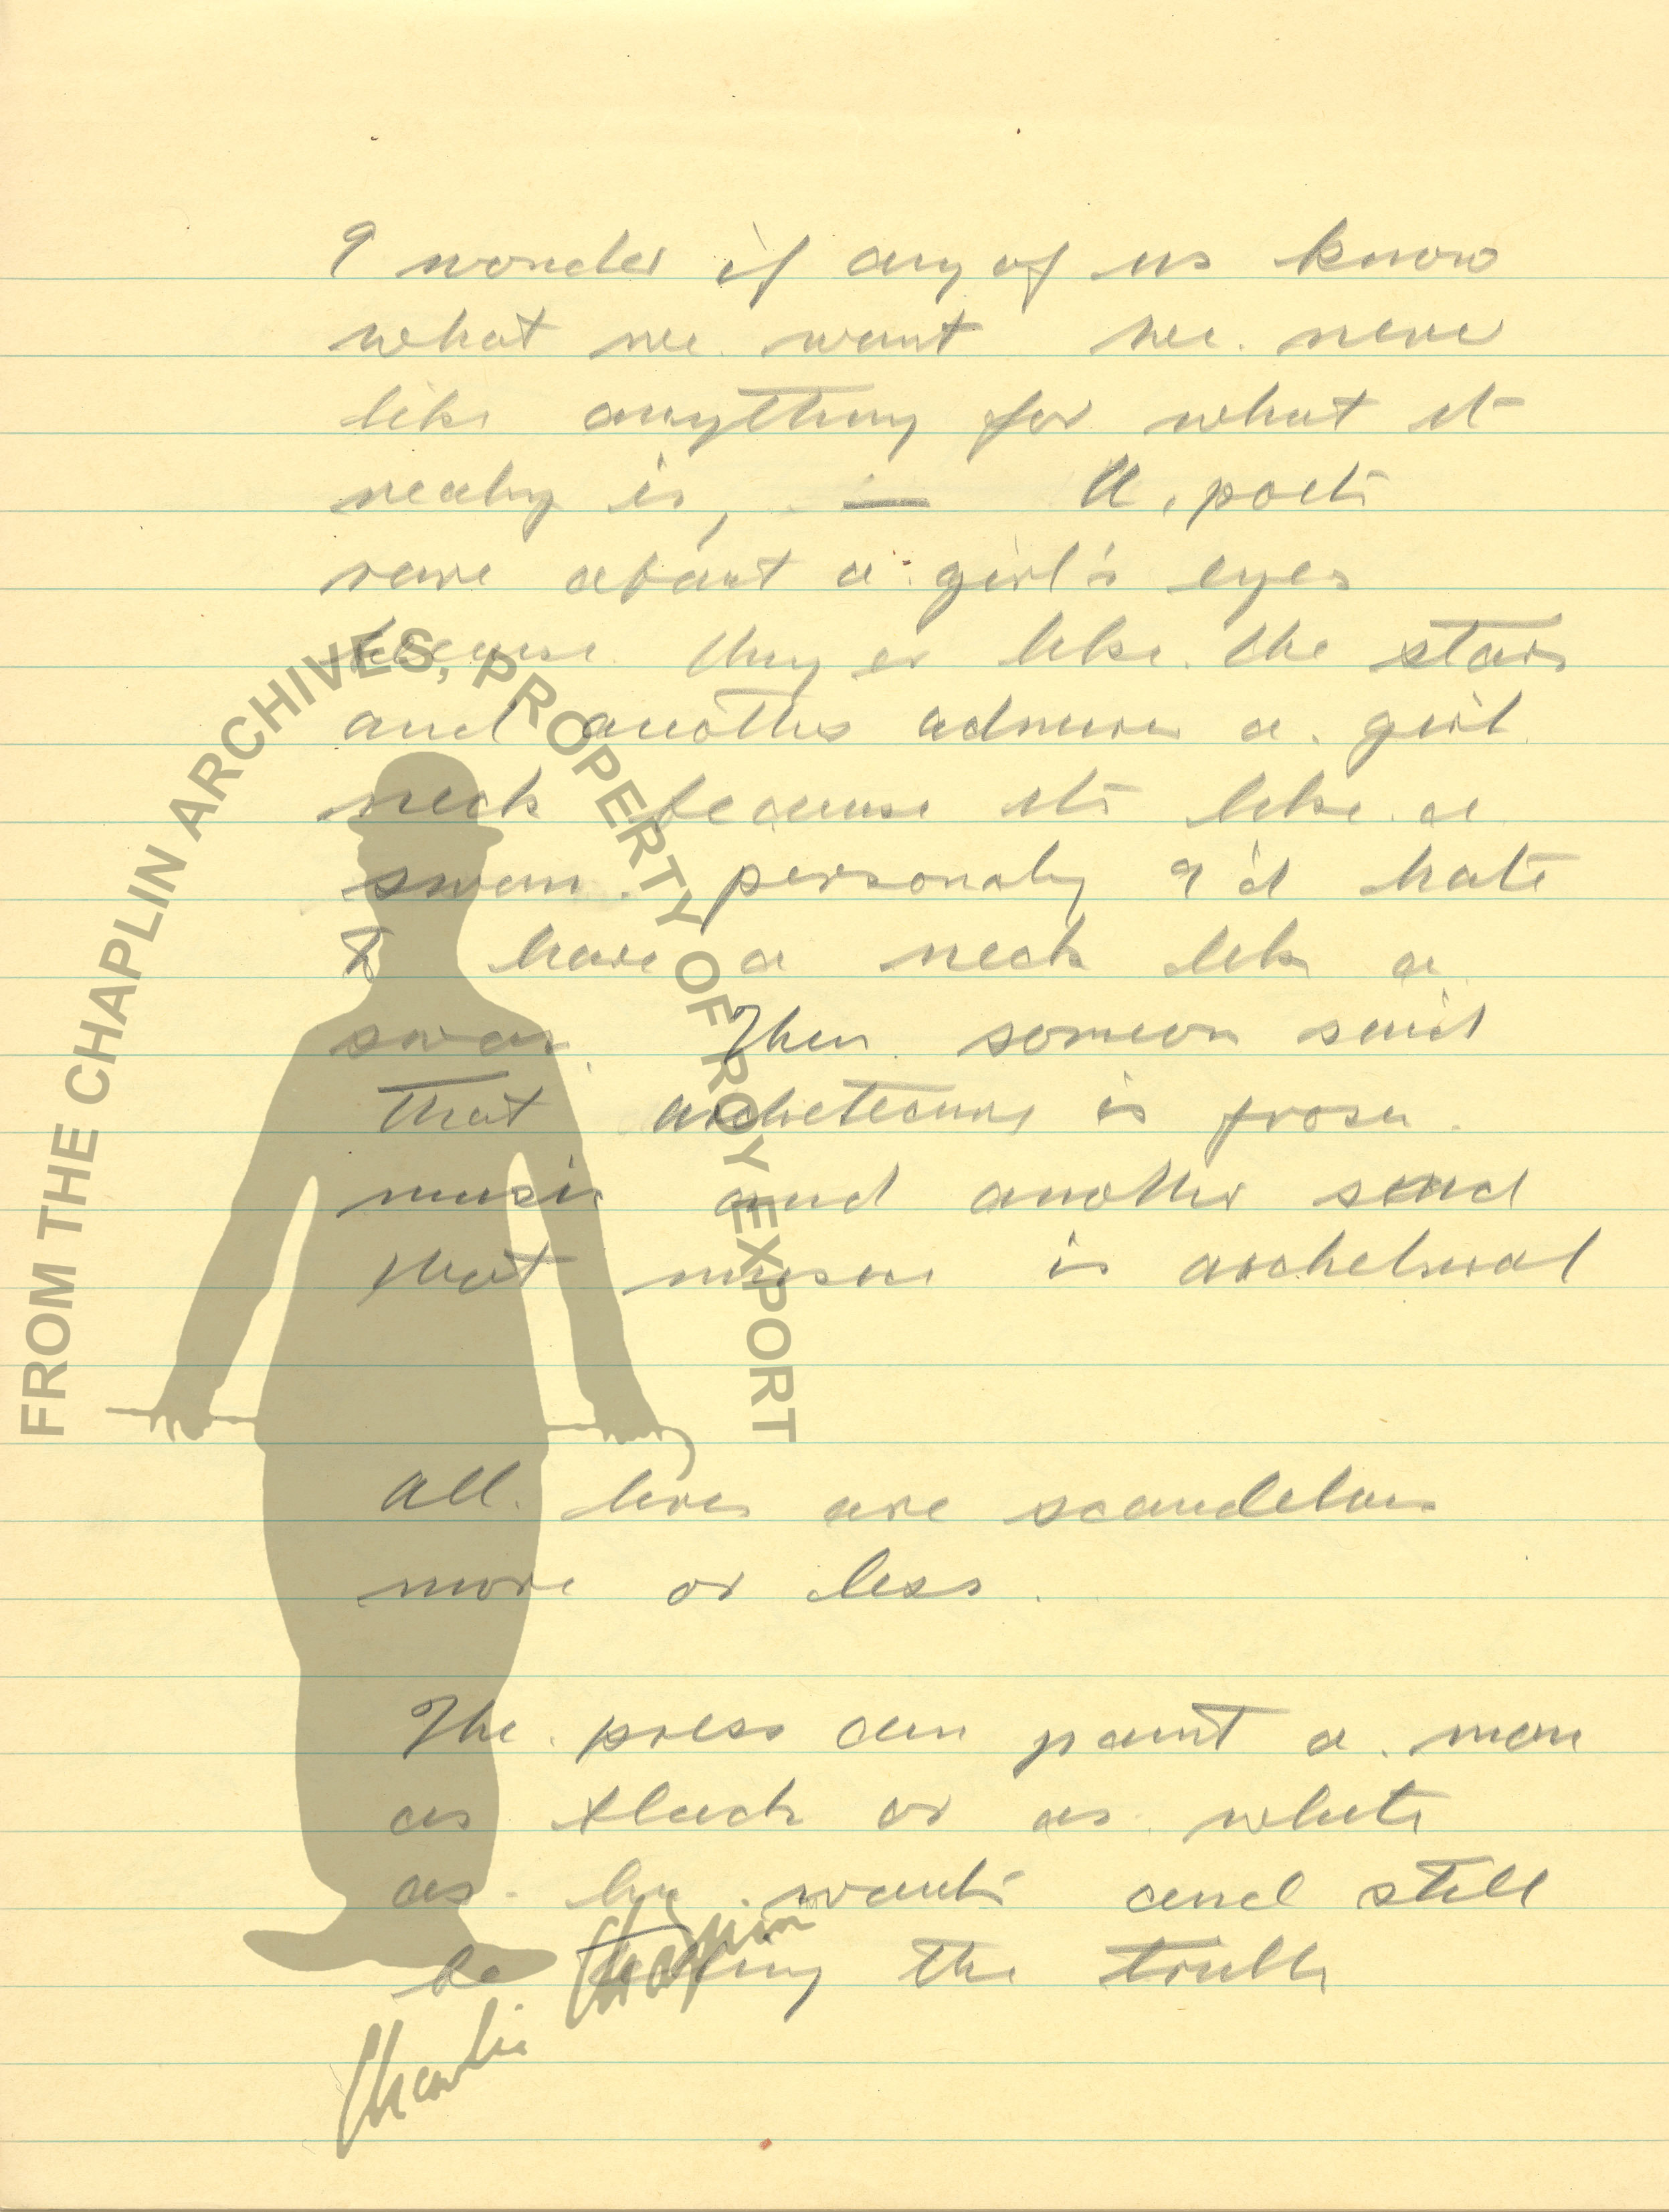 I wonder if any of us know
what we want we never
like anything for what it
really is, — A poet
rave about a girl's eyes
because they er like the stars
and another admires a girl
neck because its like a
swan. personaly I'd hate
to have a neck like a
swan. Then someon said
that archetecture is frosen
music and another said
that music is
All lives are scandelous
more or less.
The press can paint a man
as black or as white
as he wants and still
be telling the truth
FROM THE CHAPLIN ARCHIVES, PROPERTY OF ROY EXPORT
Charlie Chaplin